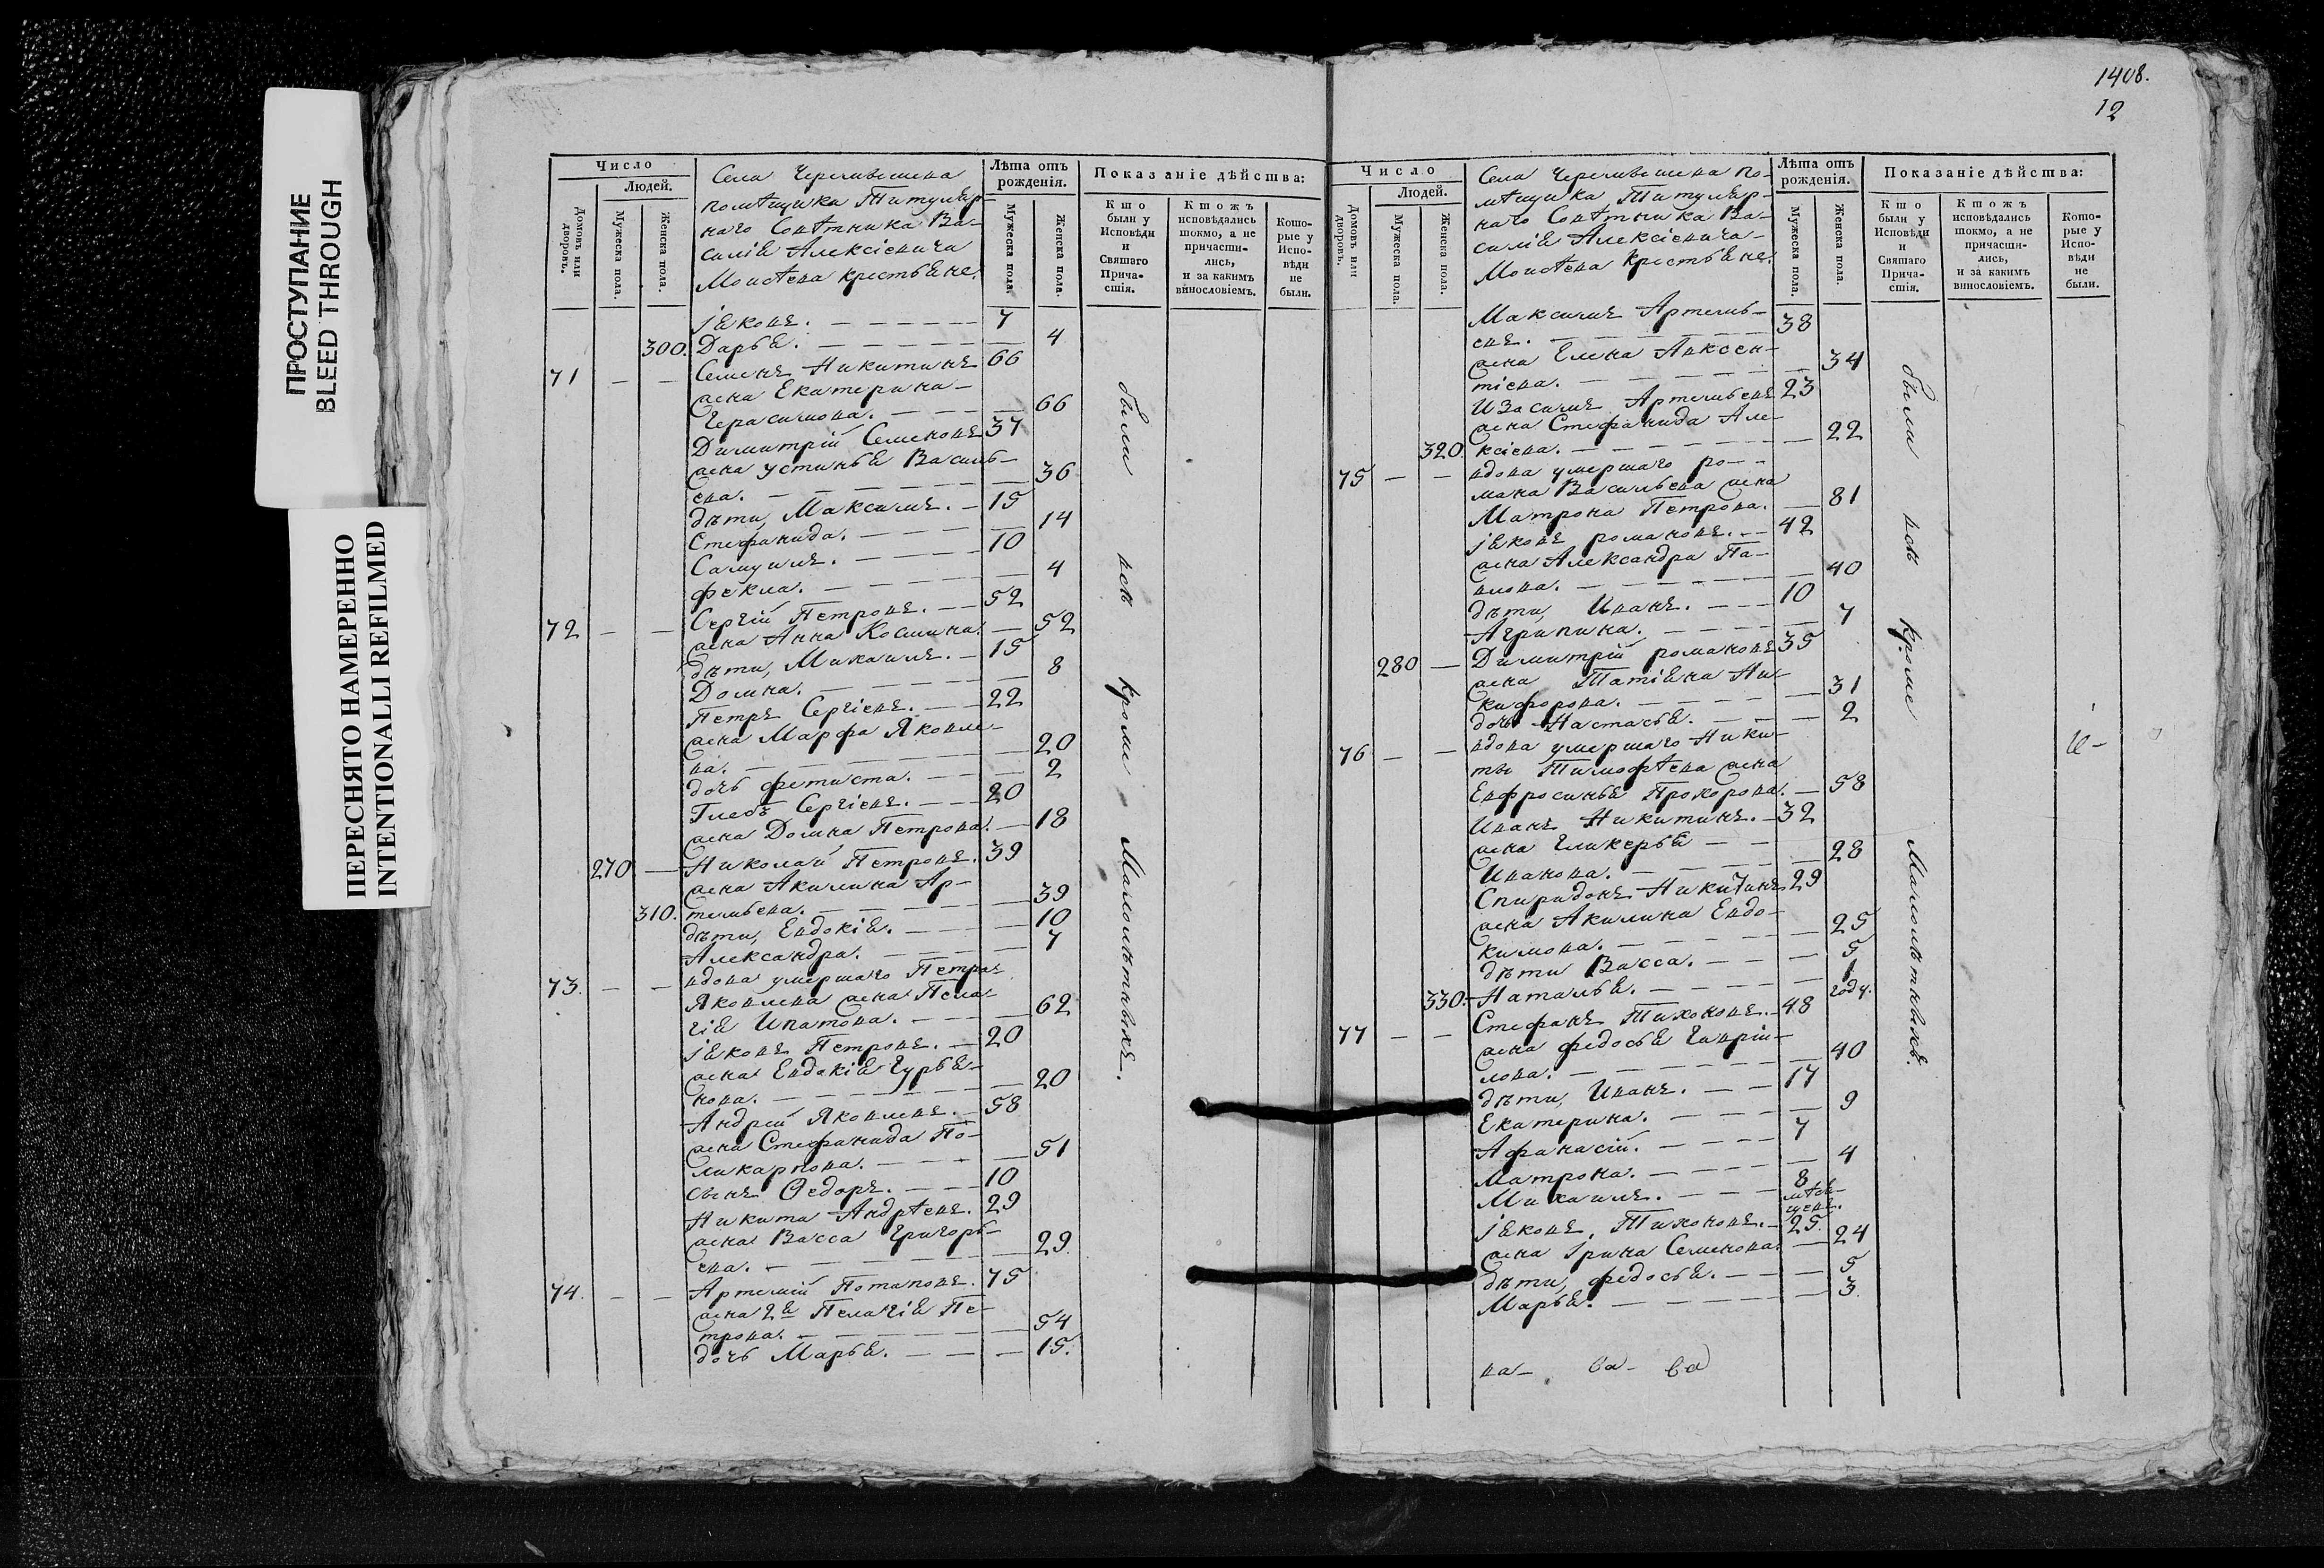 ПРОСТУПАНИЕ
BLEED THROUGH
ПЕРЕСНЯТО НАМЕРЕННО
INTENTIONALLI REFILMED
Число
Людей.
Домовъ или дворовъ.
Мужеска пола.
Женска пола.
Села
помѣщика Титуляр-
наго Совѣтника Ва-
силія Алексіевича
Моисѣева крестьяне.
Лѣта отъ рожденія.
Мужеска пола.
Женска пола.
Показаніе дѣйства:
Кто были у Исповѣди и Святаго Прича-стія.
Ктожъ исповѣдались токмо, а не причасти-лись, и за какимъ винословіемъ.
Кото-рые у Испо-вѣди не были.
Іяковъ. 7
300. Дарья. 4
71 Семенъ Никитинъ 66
жена Екатерина
Герасимова. 66
Димитрій Семеновъ 37
жена Устинья Василь-
ева. 36
дѣти, Максимъ. 15
Стефанида. 14
Самуилъ. 10
Фекла. 4
72 Сергій Петровъ. 52
жена Анна Космина. 52
дѣти, Михаилъ. 15
Домна. 8
Петръ Сергіевъ. 22
жена Марфа Яковле-
ва. 20
дочь Фетиста. 2
Глебъ Сергіевъ. 20
жена Домна Петрова. 18
270 Николай Петровъ. 39
жена Акилина Ар-
310. темьева. 39
дѣти, Евдокія. 10
Александра. 7
73. вдова умершаго Петра
Яковлева жена Пела-
гія Ипатова. 62
Іяковъ Петровъ. 20
жена Евдокія Гурья-
нова. 20
Андрей Яковлевъ. 58
жена Стефанида По-
ликарпова. 51
сынъ Ѳедоръ. 10
Никита Андрѣевъ. 29
жена Васса Григорь-
ева. 29.
74. Артемій Потаповъ. 75
жена 2я Пелагія Пе-
трова. 54
дочь Марья. 15.
были всѣ кроме Малолѣтныхъ.
1408.
12
Число
Людей.
Домовъ или дворовъ.
Мужеска пола.
Женска пола.
Села по-
мѣщика Титуляр-
наго Совѣтника Ва-
силія Алексіевича
Моисѣева крестьяне.
Лѣта отъ рожденія.
Мужеска пола.
Женска пола.
Показаніе дѣйства:
Кто были у Исповѣди и Святаго Прича-стія.
Ктожъ исповѣдались токмо, а не причасти-лись, и за какимъ винословіемъ.
Кото-рые у Испо-вѣди не были.
Максимъ Артемь-
евъ. 38
жена Елена Авксен-
тіева. 34
Изасимъ Артемьевъ 23
жена Стефанида Але-
320. ксіева. 22
75 вдова умершаго Ро-
мана Васильева жена
Матрона Петрова. 81
Іяковъ Романовъ. 42
жена Александра Па-
влова. 40
дѣти, Иванъ. 10
Агрипина. 7
280 Димитрій Романовъ 35
жена Татіяна Ни-
кифорова. 31
дочь Настасья. 2
76 вдова умершаго Ники-
ты Тимофѣева жена
Евфросинья Прохорова. 58
Иванъ Никитинъ. 32
жена Гликерья
Иванова. 28
Спиридонъ Никитинъ 29
жена Акилина Евдо-
кимова. 25
дѣти Васса. 5
330. Наталья. 1 году.
77 Стефанъ Тихоновъ. 48
жена Федосья Гаврии-
лова. 40
дѣти, Иванъ. 17
Екатерина. 9
Афанасій. 7
Матрона. 4
Михаилъ. 8 мѣсяцевъ.
Іяковъ Тихоновъ. 25.
жена Ірина Семенова. 24
дѣти, Федосья. 5
Марья. 3.
были всѣ кроме Малолѣтныхъ.